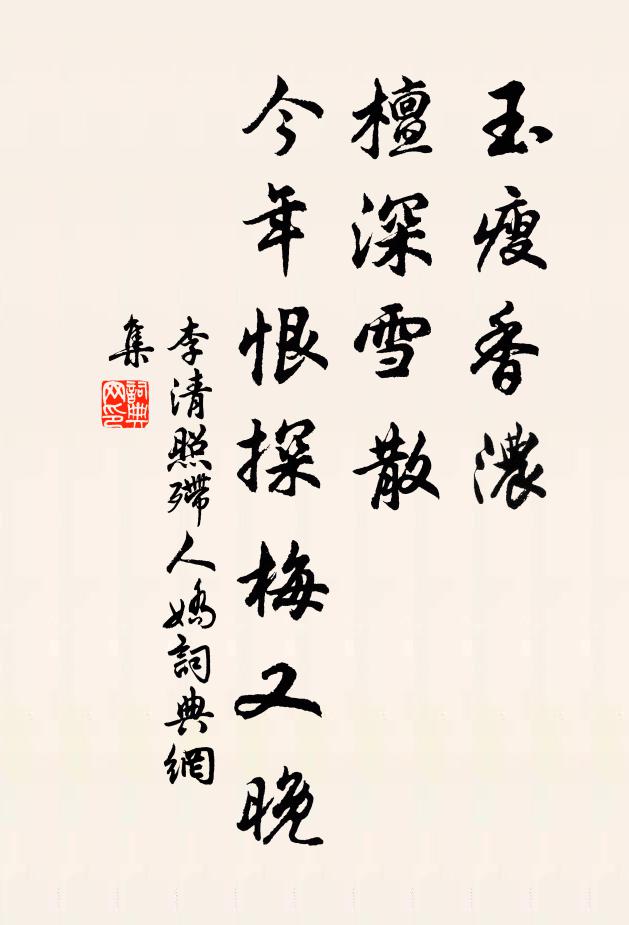 玉瘦香濃
檀深雪散
今年恨探梅又晚
李清照殢人嬌詞典網
集
詞典
网印